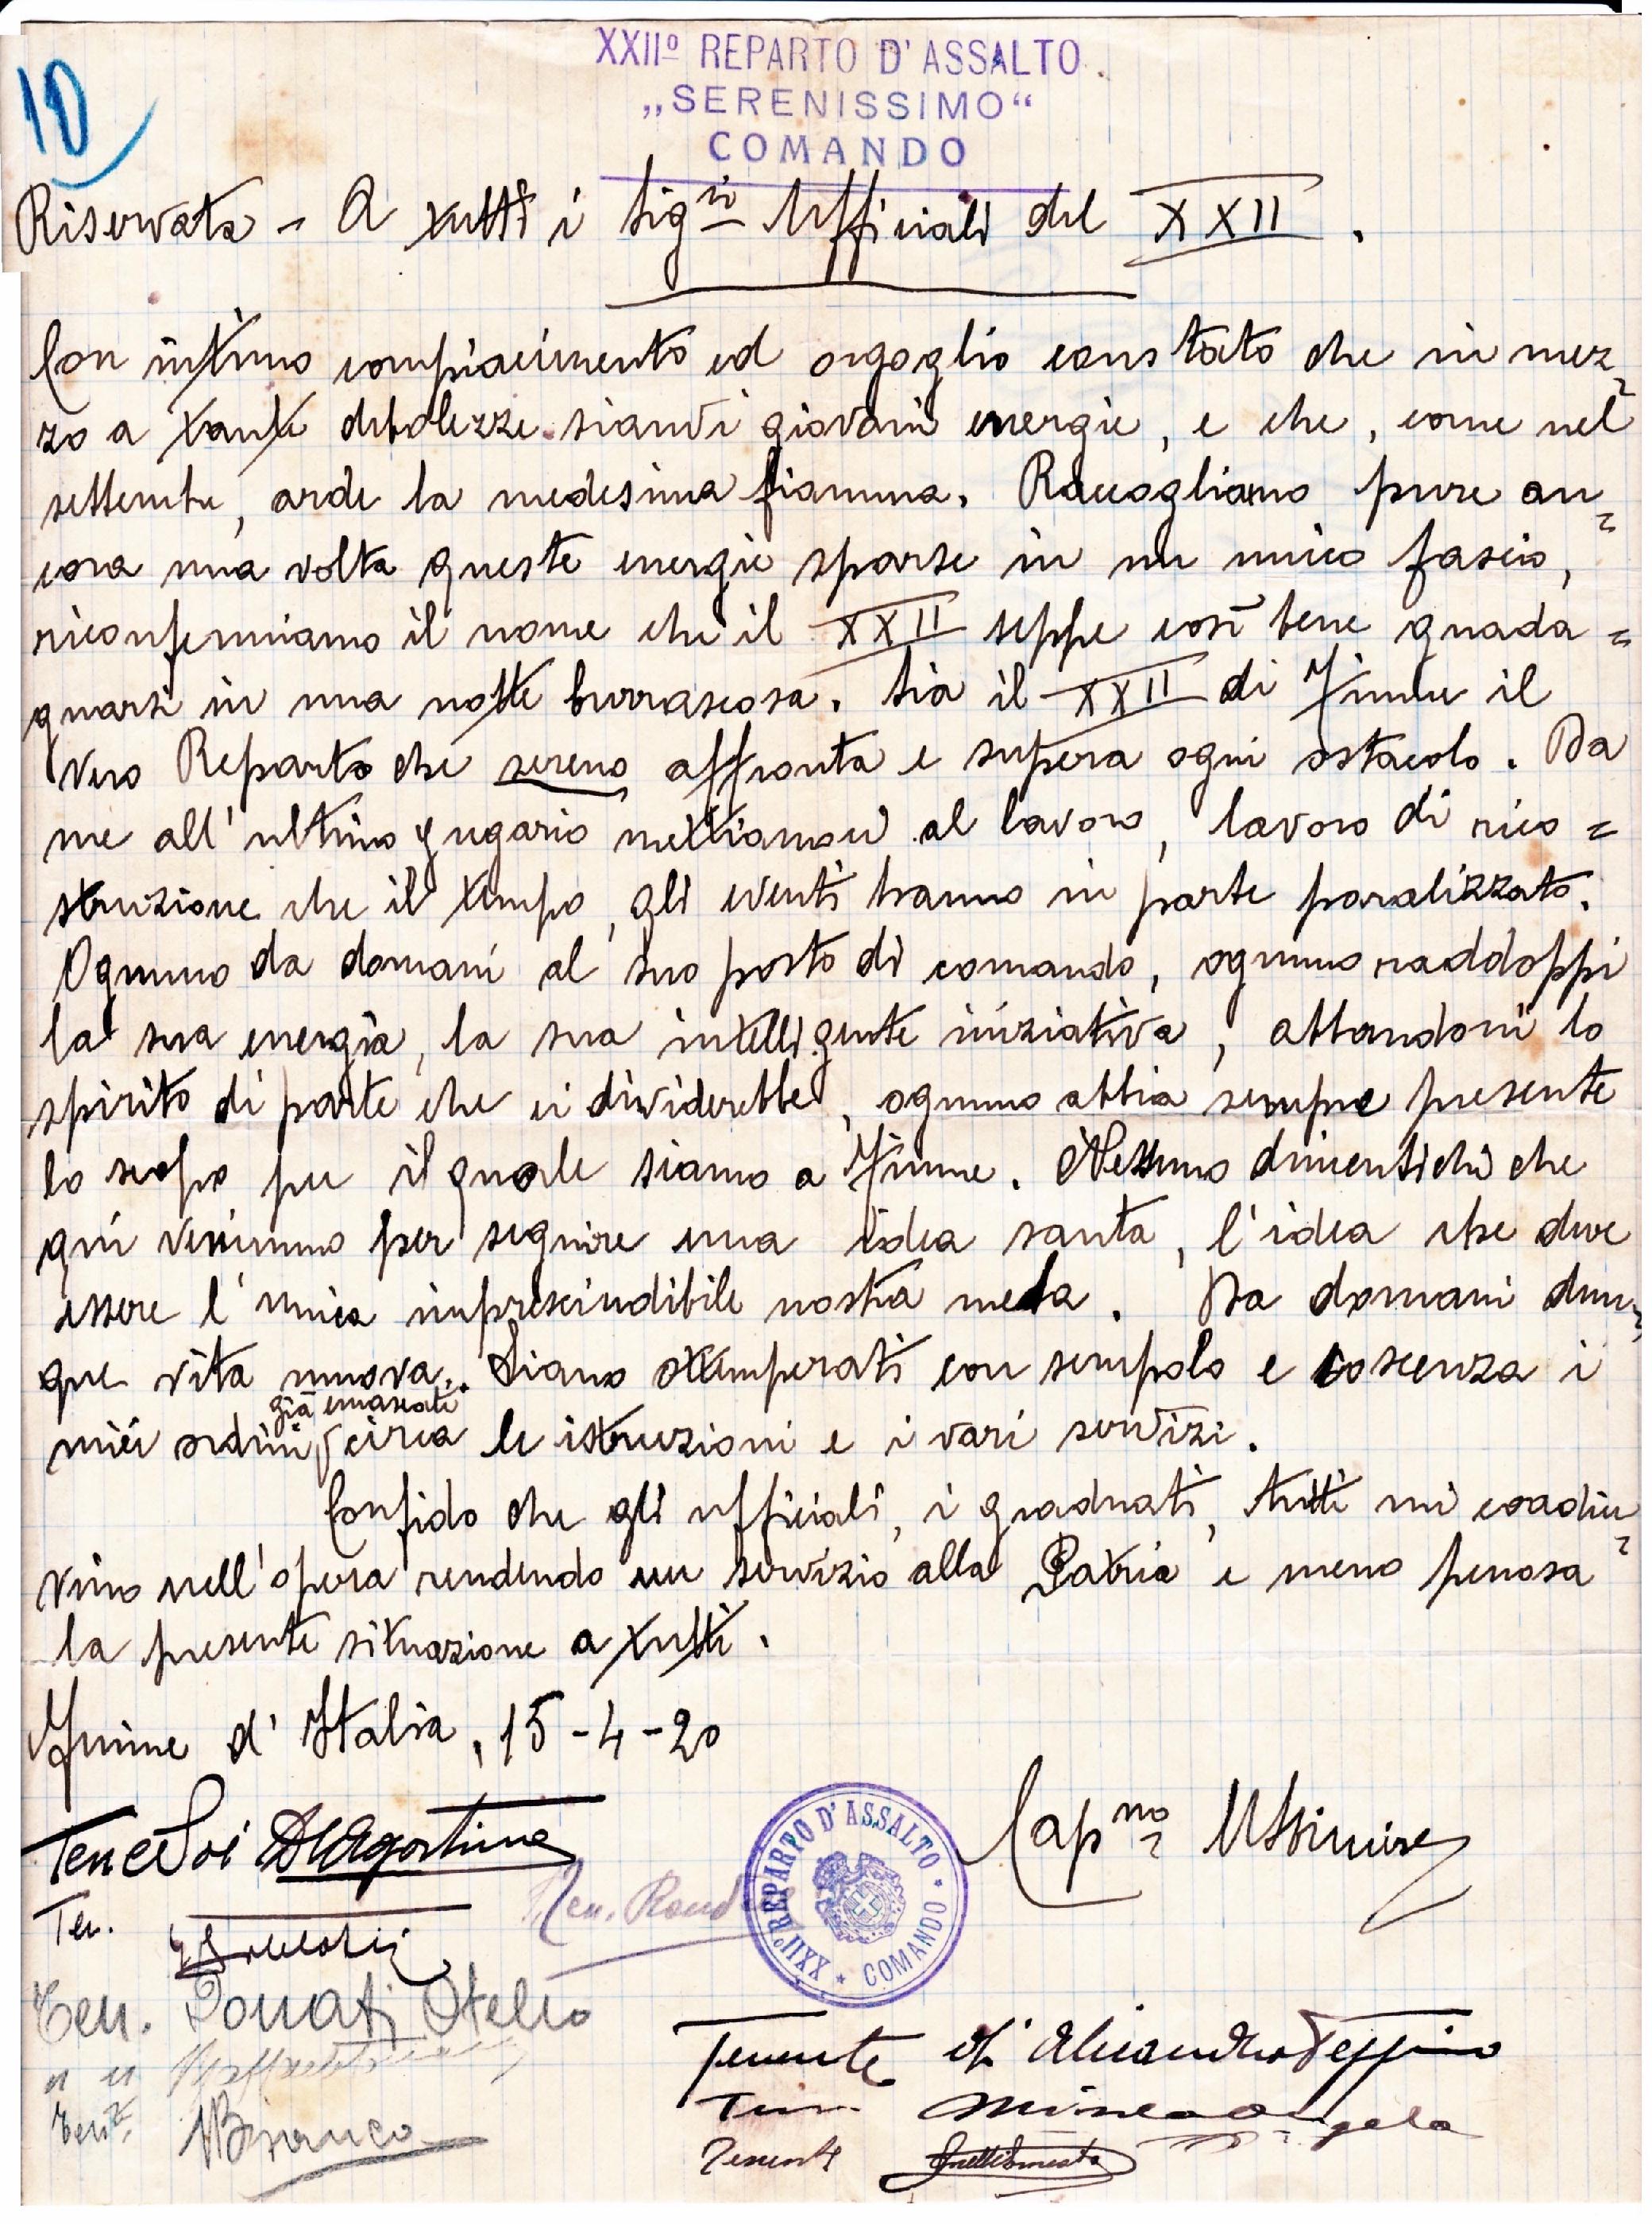 XXIIº REPARTO D'ASSALTO.
„SERENISSIMO“
COMANDO
10
Riservata - A tutti i Sigri Ufficiali del XXII.
Con intimo compiacimento ed orgoglio constato che in mez=
zo a tante debolezze sianvi giovani energie, e che, come nel
settembre, arde la medesima fiamma. Raccogliamo pure an=
cora una volta queste energie sparse in un unico fascio,
riconfermiamo il nome che il XXII seppe così bene guada=
gnarsi in una notte burrascosa. Sia il XXII di Fiume il
vero Reparto che sereno affronta e supera ogni ostacolo. Da
me all'ultimo gregario mettiamoci al lavoro, lavoro di rico=
struzione che il tempo, gli eventi hanno in parte paralizzato.
Ognuno da domani al suo posto di comando, ognuno raddoppi
la sua energia, la sua intelligente iniziativa, abbandoni lo
spirito di parte che ci dividerebbe, ognuno abbia sempre presente
lo scopo per il quale siamo a Fiume. Nessuno dimentichi che
qui venimmo per seguire una idea santa, l'idea che deve
essere l'unica imprescindibile nostra meta. Da domani dun=
que vita nuova. Siano ottemperati con scrupolo e coscenza i
miei ordini già emanati circa le istruzioni e i vari servizi.
Confido che gli ufficiali, i graduati, tutti mi coadiu=
vino nell'opera rendendo un servizio alla Patria e meno penosa
la presente situazione a tutti.
Fiume d'Italia, 15-4-20
Capno
XXIIº REPARTO D'ASSALTO * COMANDO *
Tenente D'Agostino
Ten.
Ten.
Ten. Donati Otello
" "
Tente Bianco
Tenente d'Alessandro Peppino
Ten. Angelo
Tenente